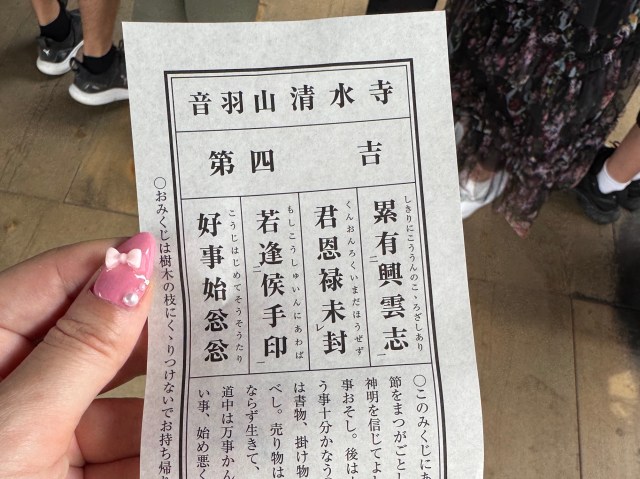 音羽山清水寺
第四 吉
累有興雲志
しきりにこううんのこゝろざしあり
君恩禄未封
くんおんろくいまだほうぜず
若逢侯手印
もしこうしゅいんにあわば
好事始忩忩
こうじはじめてそうそうたり
○このみくじにあ
節をまつがごとし
神明を信じてよし
事おそし。後は
う事十分かなう
は書物、掛け物
べし。売り物は
ならず生きて、
道中は万事かん
い事、始め悪く
○おみくじは樹木の枝にくゝりつけないでお持ち帰り